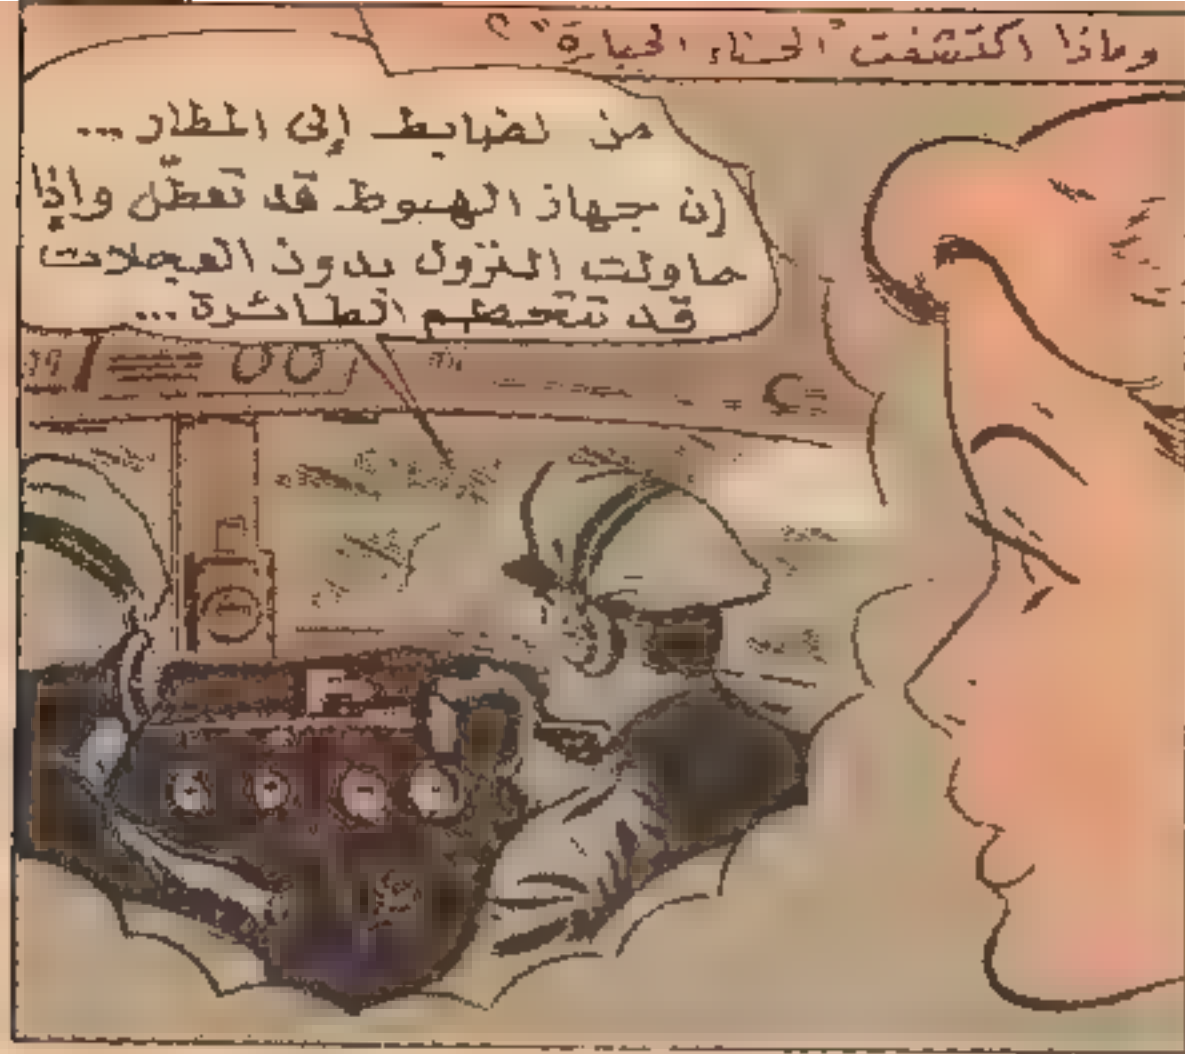 وماذا اكتشفت "الحسناء الجبارة"؟
من لضابط إلى المطار...
إن جهاز الهبوط قد تعطّل وإذا
حاولت النزول بدون العجلات
قد تتحطم الطائرة...